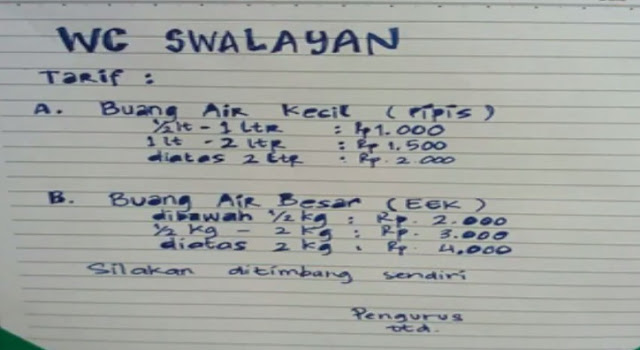 WC SWALAYAN
Tarif :
A. Buang Air Kecil (Pipis)
1/2 lt - 1 Ltr : Rp 1.000
1 Lt - 2 Ltr : Rp 1.500
diatas 2 Ltr : Rp. 2.000
B. Buang Air Besar (EEK)
dibawah 1/2 kg : Rp. 2.000
1/2 kg - 2 kg : Rp. 3.000
diatas 2 kg : Rp 4.000
Silakan ditimbang sendiri
Pengurus
ttd.